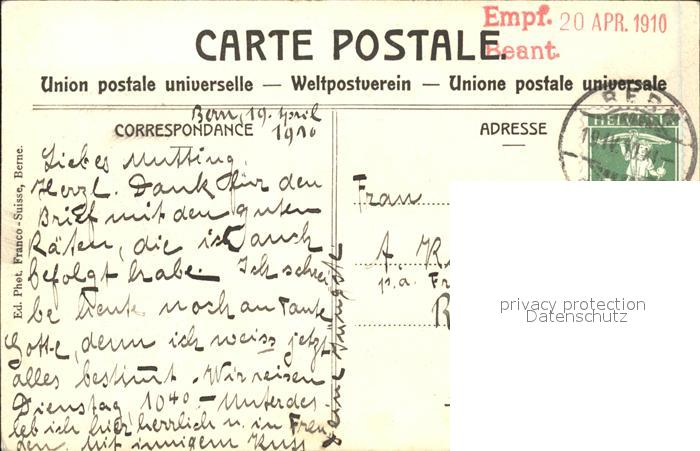 Empf. 20 APR. 1910
Beant.
CARTE POSTALE.
Union postale universelle — Weltpostverein — Unione postale universale
Bern, 19. April
1910
CORRESPONDANCE
ADRESSE
Liebes Mutting,
Herzl. Dank für den
Brief mit den guten
Räten, die ich auch
befolgt habe. Ich schrei
be heute noch an Tante
Lotte, denn ich weiss jetzt
alles bestimmt. Wir reisen
Dienstag 10⁴⁰ – Unterdes
leb ich hier herrlich u. in Freu
den. Mit innigem Kuss
Deine Jüngste
Frau
A. K
p.a. Fr
R
BERN
HELVETIA
Ed. Phot. Franco-Suisse, Berne.
privacy protection
Datenschutz